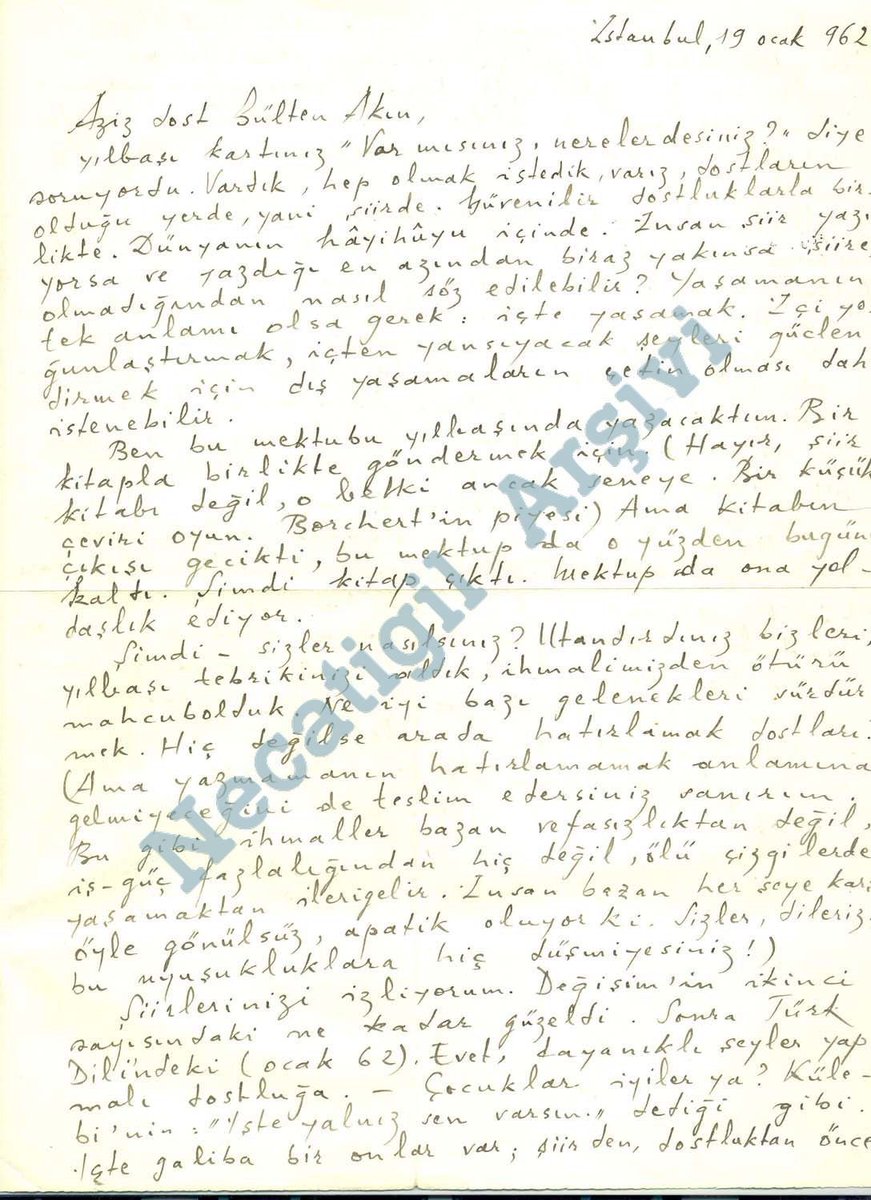 İstanbul, 19 ocak 962
Aziz dost Gülten Akın,
yılbaşı kartınız "Var mısınız, nerelerdesiniz?" diye
soruyordu. Vardık, hep olmak istedik, varız, dostların
olduğu yerde, yani şiirde. Güvenilir dostluklarla bir-
likte. Dünyanın hâyihûyu içinde. İnsan şiir yazı
yorsa ve yazdığı en azından biraz yakınsa şiire,
olmadığından nasıl söz edilebilir? Yaşamanın
tek anlamı olsa gerek: içte yaşamak. İçi yo-
ğunlaştırmak, içten yansıyacak şeyleri güçlen
dirmek için dış yaşamaların çetin olması dah
istenebilir.
Ben bu mektubu yılbaşında yazacaktım. Bir
kitapla birlikte göndermek için. (Hayır, şiir
kitabı değil, o belki ancak seneye. Bir küçük
çeviri oyun. Borchert'in piyesi) Ama kitabın
çıkışı gecikti, bu mektup da o yüzden bugün
kaldı. Şimdi kitap çıktı. Mektup da ona yol-
daşlık ediyor.
Şimdi - sizler nasılsınız? Utandırdınız bizleri,
yılbaşı tebrikinizi aldık, ihmalimizden ötürü
mahcubolduk. Ne iyi bazı gelenekleri sürdür
mek. Hiç değilse arada hatırlamak dostları.
(Ama yazmamanın hatırlamamak anlamına
gelmiyeceğini de teslim edersiniz sanırım.
Bu gibi ihmaller bazan vefasızlıktan değil,
iş-güç fazlalığından hiç değil, ölü çizgilerde
yaşamaktan ilerigelir. İnsan bazan her şeye karş
öyle gönülsüz, apatik oluyor ki. Sizler, dileriz
bu uyuşukluklara hiç düşmiyesiniz!)
Şiirlerinizi izliyorum. Değişim'in ikinci
sayısındaki ne kadar güzeldi. Sonra Türk
Dili'ndeki (ocak 62). Evet, dayanıklı şeyler yap
malı dostluğa. - Çocuklar iyiler ya? Küle-
bi'nin: "İşte yalnız sen varsın." dediği gibi.
İşte galiba bir onlar var; şiirden, dostluktan önce
Necatigil Arşivi